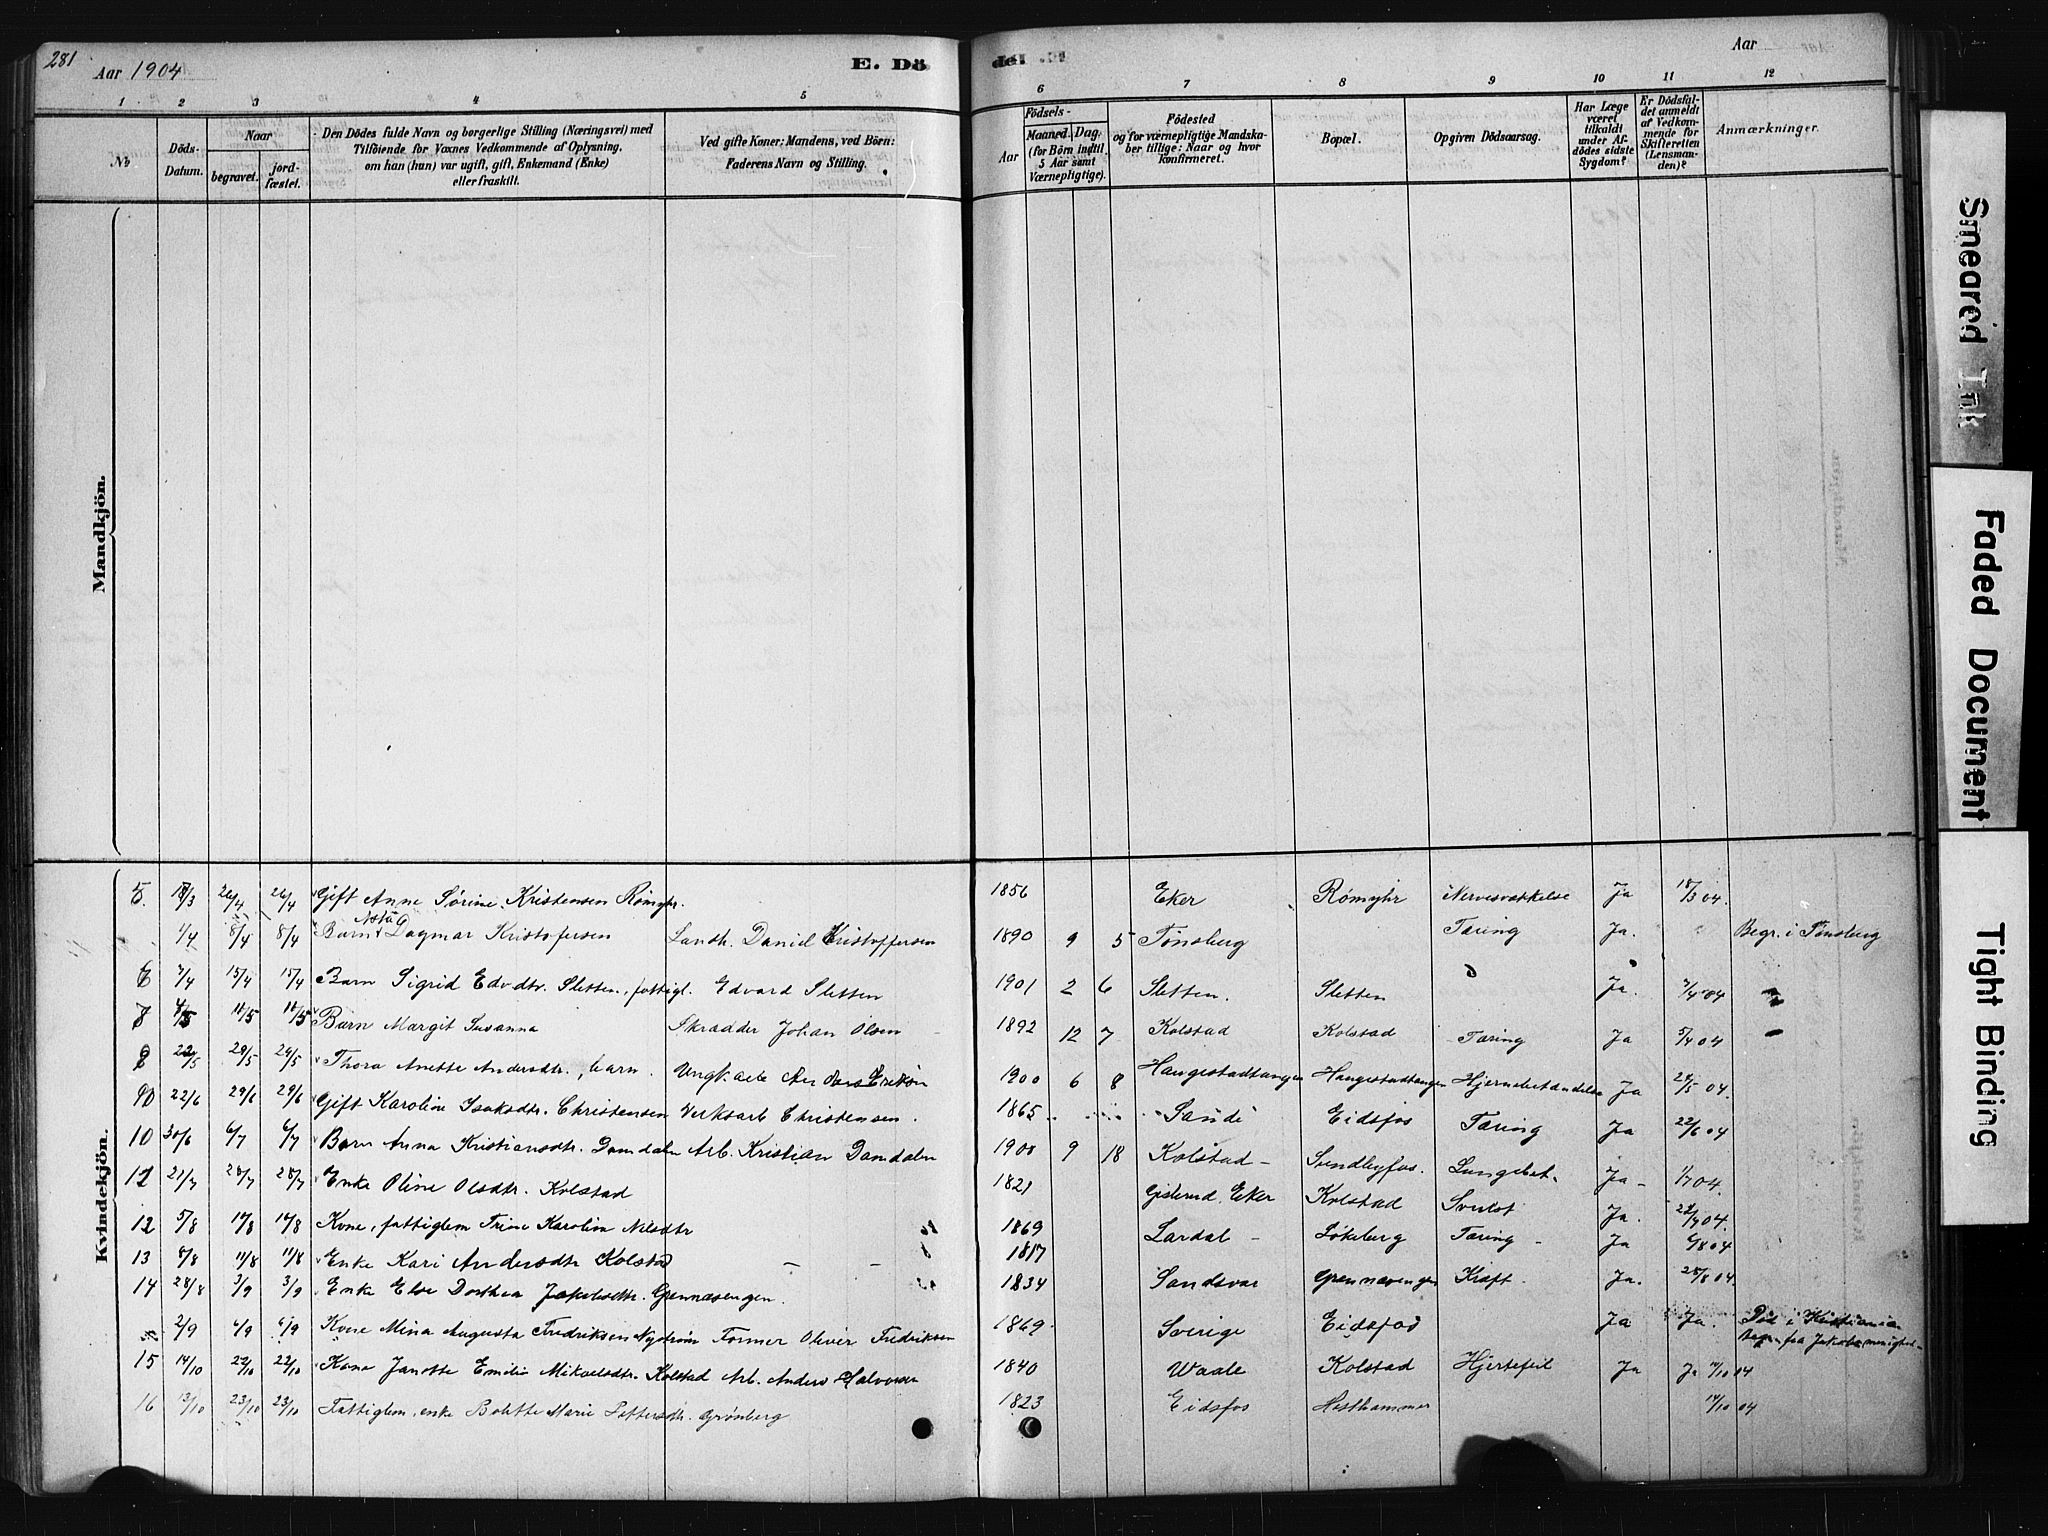 281
Aar 1904
E. Dö
del
Aar
1 2 3 4 5 6 7 8 9 10 11 12
No
Döds-Datum.
Naar
begravet.
jord-fæstet.
Den Dödes fulde Navn og borgerlige Stilling (Næringsvei) med
Tilföiende for Voxnes Vedkommende af Oplysning,
om han (hun) var ugift, gift, Enkemand (Enke)
eller fraskilt.
Ved gifte Koner: Mandens, ved Börn:
Faderens Navn og Stilling.
Födsels-
Aar
Maaned. Dag.
(for Börn indtil
5 Aar samt
Værnepligtige).
Födested
og for værnepligtige Mandska-
ber tillige: Naar og hvor
konfirmeret.
Bopæl.
Opgiven Dödsaarsag.
Har Læge
været
tilkaldt
under Af-
dödes sidste
Sygdom?
Er Dödsfal-
det anmeldt
af Vedkom-
mende for
Skifteretten
(Lensman-
den)?
Anmærkninger.
Mandkjön.
Kvindekjön.
5. 18/3 26/4 26/4 Gift Anne Sørine Kristensen Römyhr. 1856 Eker Römyhr Nervesvækkelse Ja 18/3 04.
1/4 8/4 8/4 Barn Dagmar Kristofersen Landh. Daniel Kristoffersen 1890 9 5 Tönsberg Tæring Ja. Begr. i Tönsberg
6 7/4 15/4 15/4 Barn Sigrid Edvdtr. Sletten, fattigl. Edvard Sletten 1901 2 6 Sletten. Sletten Ja. 7/4 04
7 4/5 11/5 11/5 Barn Margit Susanna Skrædder Johan Olsen 1892 12 7 Kolstad Kolstad Tæring Ja 5/4 04
8 22/5 29/5 29/5 Thora Anette Andersdtr., barn. 1900 6 8 Haugestadtangen Haugestadtangen Hjernebetændelse Ja 24/5 04.
9 22/6 29/6 29/6 Gift Karoline Isaksdtr. Christensen Verksarb Christensen. 1865 Sande Eidsfos Tæring Ja 22/6 04
10 30/6 6/7 6/7 Barn Anna Kristiansdtr. Damdalen Arb. Kristian Damdalen 1900 9 18 Kolstad Sundbyfos. Lungebet. Ja 1/7 04.
11 21/7 28/7 28/7 Enke Oline Olsdtr. Kolstad 1821 Gislerud, Eker Kolstad Ja. 22/7 04.
12 5/8 14/8 14/8 Kone, fattiglem Trine Karoline Nilsdtr 1869 Lardal Løkeberg Tæring Ja 6/8 04
13 8/8 11/8 11/8 Enke Kari Andersdtr Kolstad 1817
14 28/8 3/9 3/9 Enke Else Dorthea Jakobsdtr. Grennæsengen. 1834 Sandsvær Grennæsengen Kræft Ja. 28/8 04.
2/9 6/9 6/9 Kone Mina Augusta Fredriksen Nyström Former Oliver Fredriksen 1869 Sverige Eidsfod Ja Ja. Död i Kristiania
Begr. fra Jakobs menighed
15 14/10 22/10 22/10 Kone Janette Emilie Mikaelsdtr. Kolstad Arb. Anders Halvorsen 1840 Waale Kolstad Hjertefeil Ja Ja 17/10 04
16 13/10 23/10 23/10 Fattiglem, enke Bolette Marie Pettersdtr. Grönberg 1823 Eidsfos Hesthammer 14/10 04
Smeared Ink
Faded Document
Tight Binding